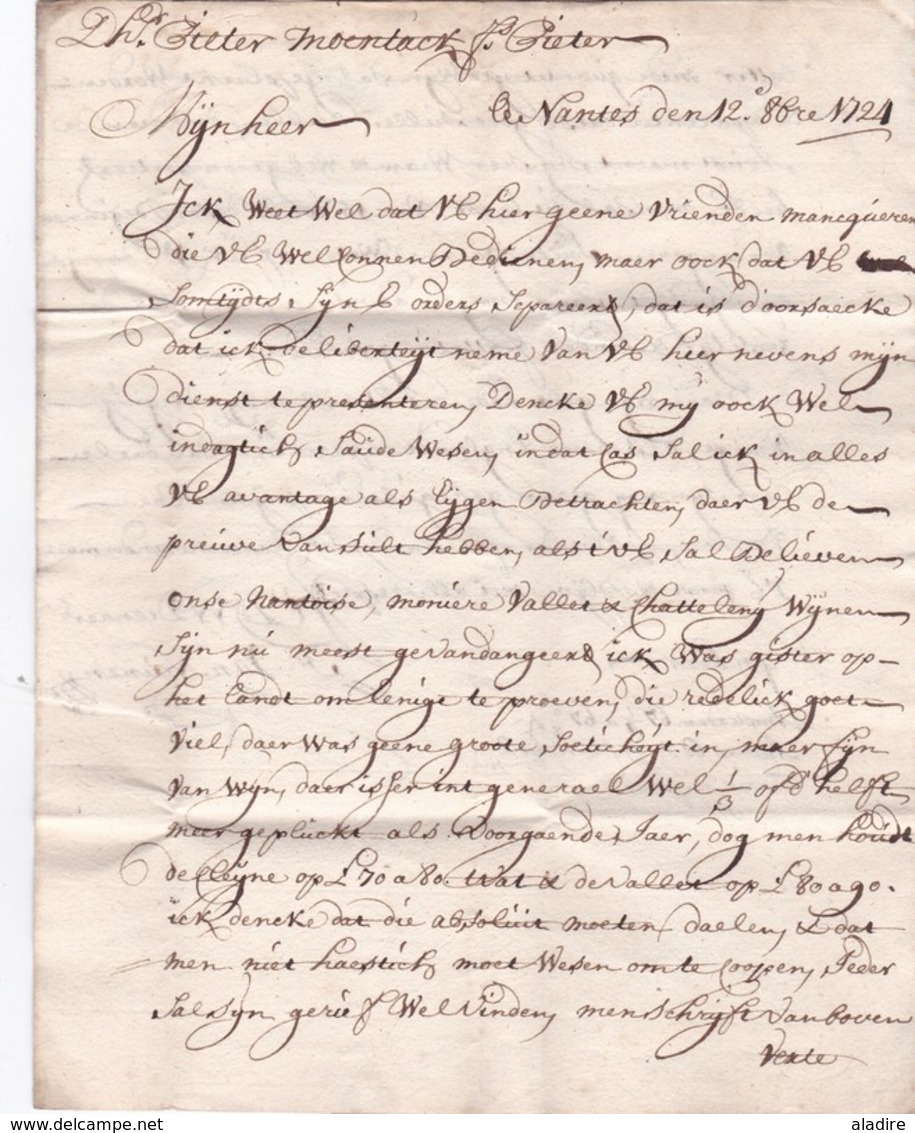 Dhr. Pieter Moentack fs. Pieter
Mijnheer
Nantes den 12e. 8bre 1724
Ick Weet Wel dat VE hier geene Vrienden mancqueren
die VE Wel connen Bedienen, maer oock dat VE
Somtydts Syn E orders Separeert, dat is d'oorsaecke
dat ick de liberteijt neme Van VE hier nevens mijn
dienst te presenteren, Dencke VE my oock Wel
indagtich Saude Wesen, indat Cas Sal ick in alles
VE avantage als Eijgen Betrachten, daer VE de
preuve Van Sult hebben, als't VE Sal Believen
onse Nantoise, moniere Vallet & Chatteleny Wijnen
Sijn nu meest gevandangeert ick Was gister op
het Landt om Eenige te proeven, die redelick goet
Viel, daer Was geene groote Soetichoyt in, maer fijn
Van Wijn, daer isser int generael Wel 1/3 ofd' helft
meer geplückt als Doorgaende Jaer, dog men houdt
de Cleijne op £ 70 a 80. & de Vallet op £ 80 a 90.
ick dencke dat die absolüit moeten daelen, & dat
men niet haestich moet Wesen om te Coopen, Jeder
Sal Syn gerief Wel Vinden, men Schrijft Van boven
Verte
aladire